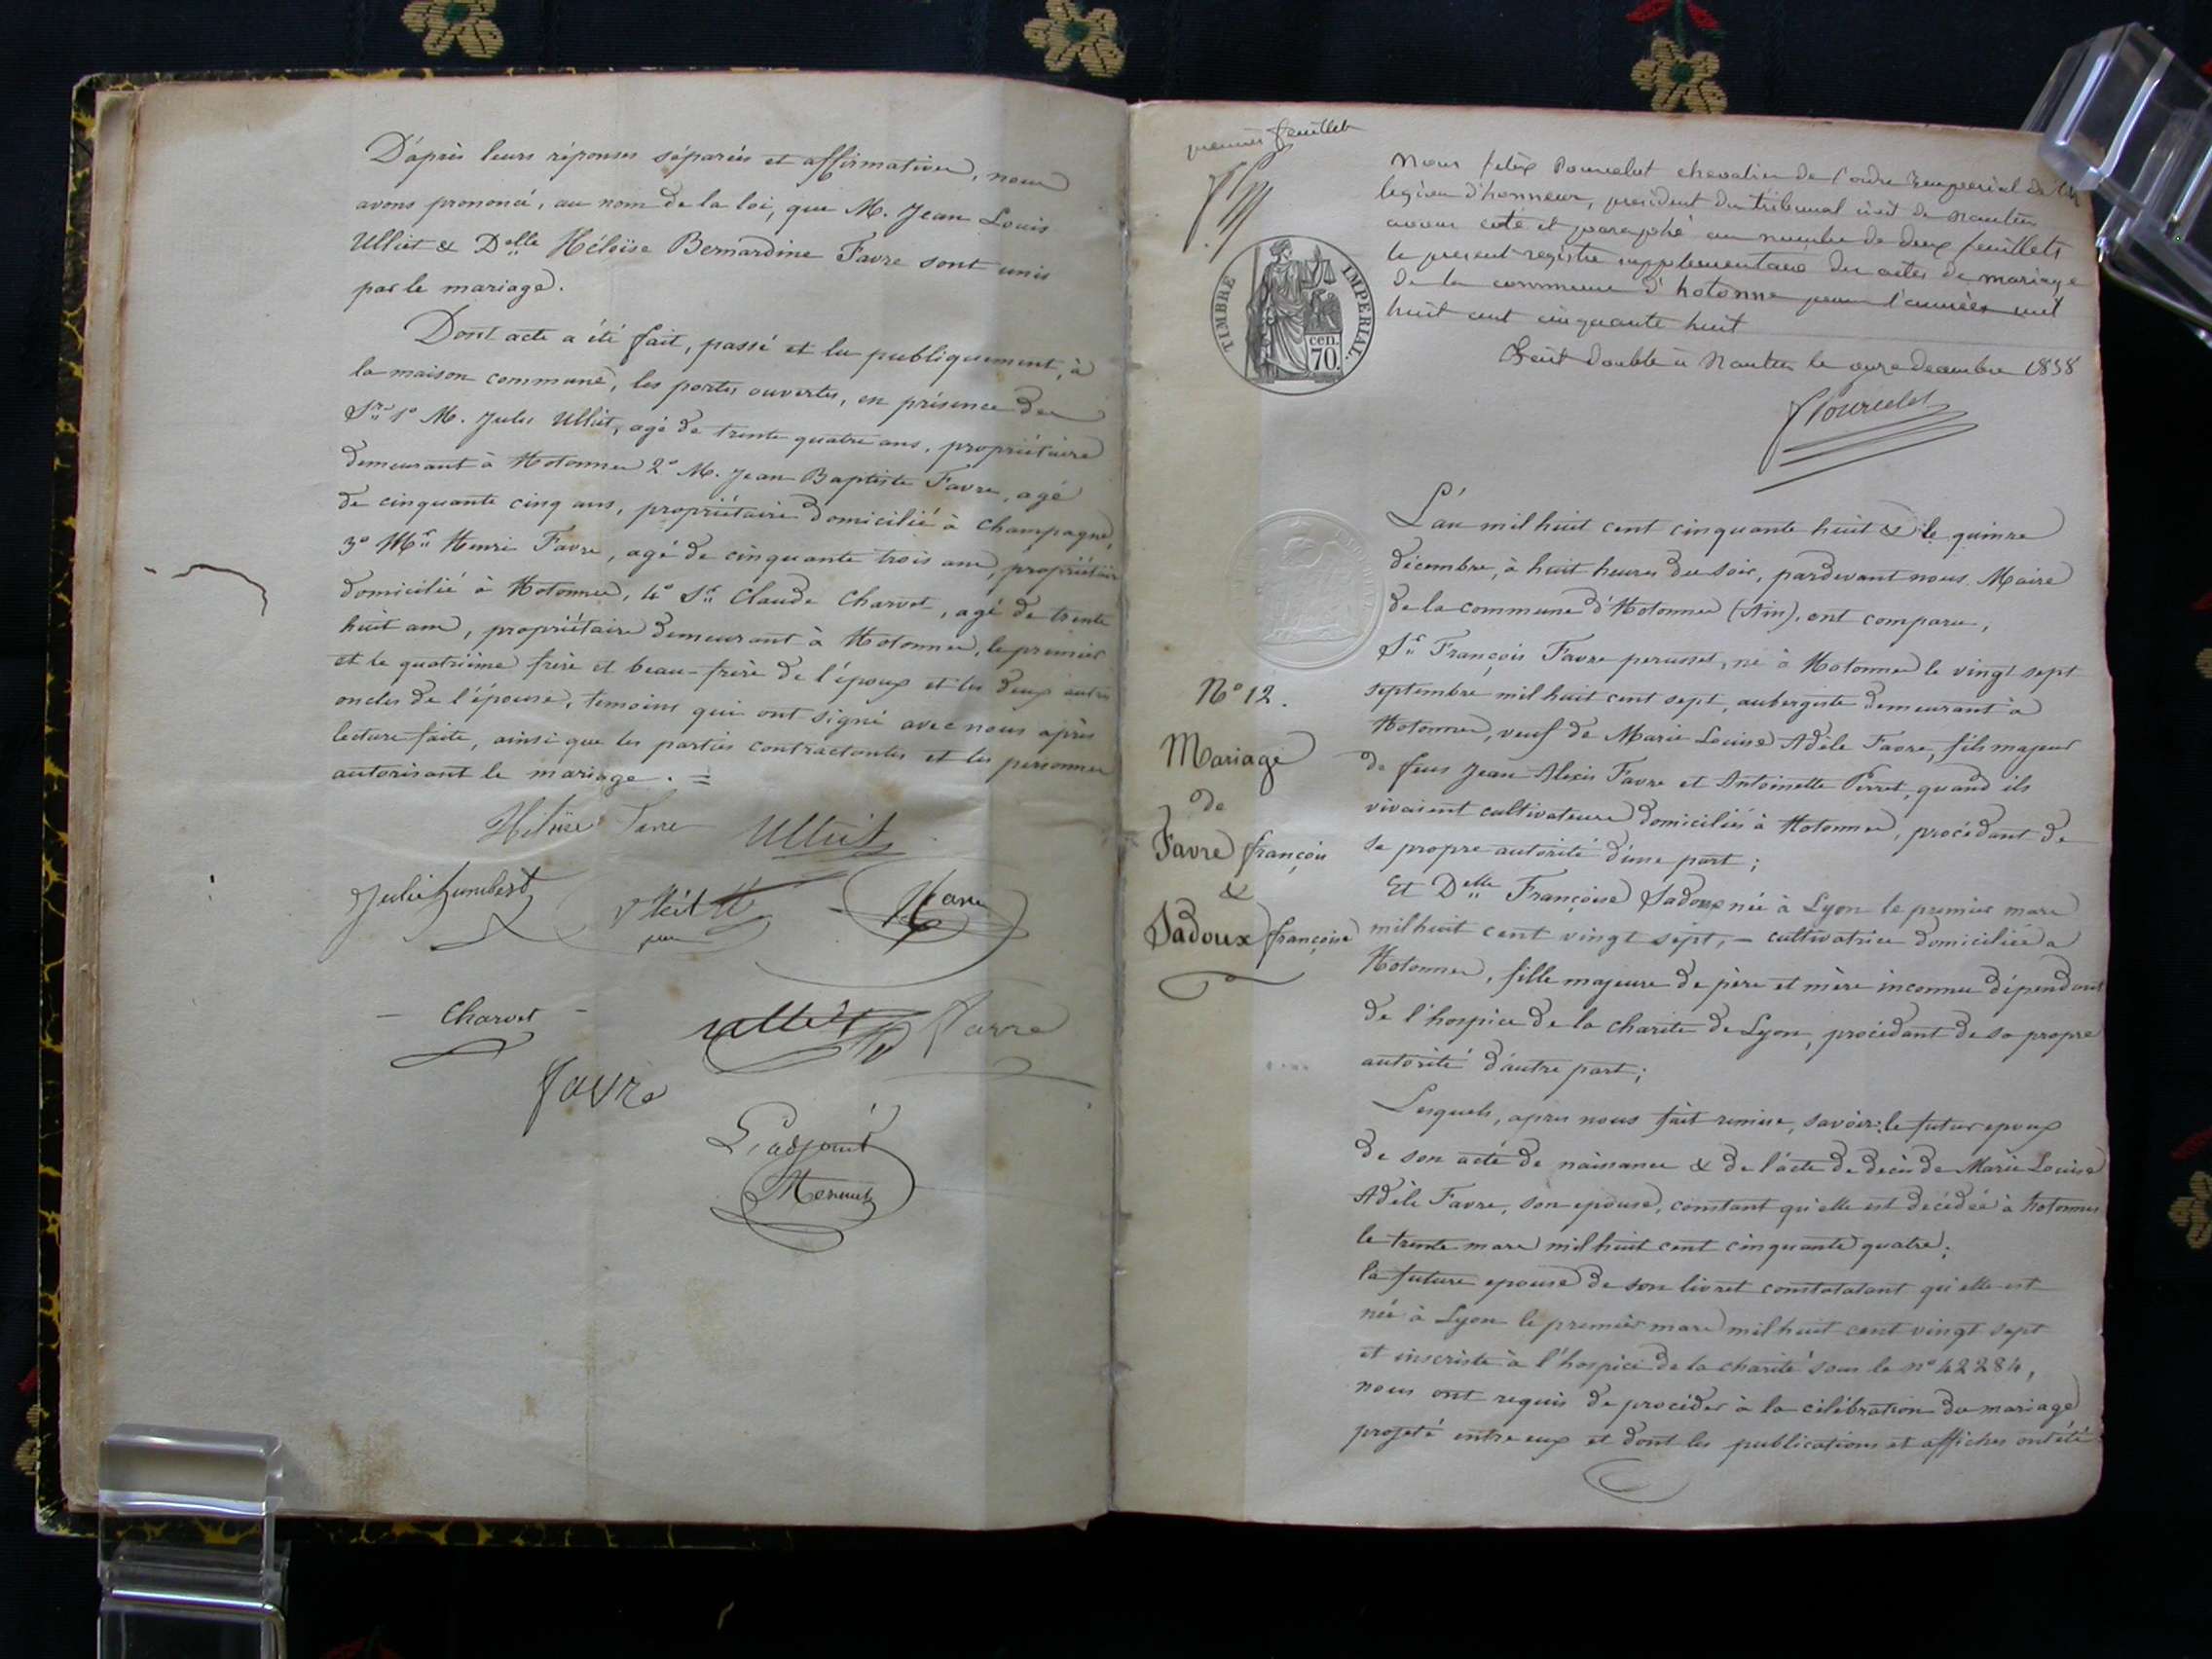 D'après leurs réponses séparées et affirmatives, nous
avons prononcé, au nom de la loi, que M. Jean Louis
Ulliet & Delle Héloïse Bernardine Favre sont unis
par le mariage.
Dont acte a été fait, passé et lu publiquement, à
la maison commune, les portes ouvertes, en présence des
Srs 1° M. Jules Ulliet, agé de trente quatre ans, propriétaire
demeurant à Hotonnes 2° M. Jean Baptiste Favre, agé
de cinquante cinq ans, propriétaire domicilié à Champagne,
3° Mr Henri Favre, agé de cinquante trois ans, propriétaire
domicilié à Hotonnes, 4° Sr Claude Charvet, agé de trente
huit ans, propriétaire demeurant à Hotonnes, le premier
et le quatrième frère et beau-frère de l'époux et les deux autres
oncles de l'épouse, temoins qui ont signé avec nous après
lecture faite, ainsi que les parties contractantes et les personnes
autorisant le mariage. =
Héloïse Favre Ulliet
Julie humbert
Charvet Favre
Favre
L'adjoint
premier feuillet
Nous felix Pourcelot chevalier de l'ordre Imperial de la
legion d'honneur, president du tribunal civil de Nantua
avons coté et paraphé au nombre de deux feuillets
le present registre supplementaire des actes de mariage
de la commune d'hotonne pour l'année mil
huit cent cinquante huit
Fait double à Nantua le onze decembre 1858
FPourcelot
TIMBRE IMPERIAL.
cen.
70.
L'an mil huit cent cinquante huit & le quinze
décembre, à huit heures du soir, pardevant nous Maire
de la commune d'Hotonnes (Ain), ont comparu,
Sr François Favre perusset, né à Hotonnes le vingt sept
septembre mil huit cent sept, aubergiste demeurant à
Hotonnes, veuf de Marie Louise Adèle Favre, fils majeur
de feus Jean Alexis Favre et Antoinette Perret, quand ils
vivaient cultivateurs domiciliés à Hotonnes, procédant de
sa propre autorité d'une part;
Et Delle Françoise Sadoux née à Lyon le premier mars
mil huit cent vingt sept, – cultivatrice domiciliée a
Hotonnes, fille majeure de père et mère inconnus dépendant
de l'hospice de la charité de Lyon, procédant de sa propre
autorité d'autre part;
Lesquels, après nous fait remise, savoir: le futur epoux
de son acte de naissance & de l'acte de decès de Marie Louise
Adèle Favre, son epouse, constant qu'elle est decédée à hotonnes
le trente mars mil huit cent cinquante quatre;
la future epouse de son livret constatatant qu'elle est
née à Lyon le premier mars mil huit cent vingt sept
et inscriste à l'hospice de la charité sous le n° 42284,
nous ont requis de procéder à la célébration du mariage
projeté entre eux et dont les publications et affiches ont été
N° 12.
Mariage
de
Favre françois
&
Sadoux françoise